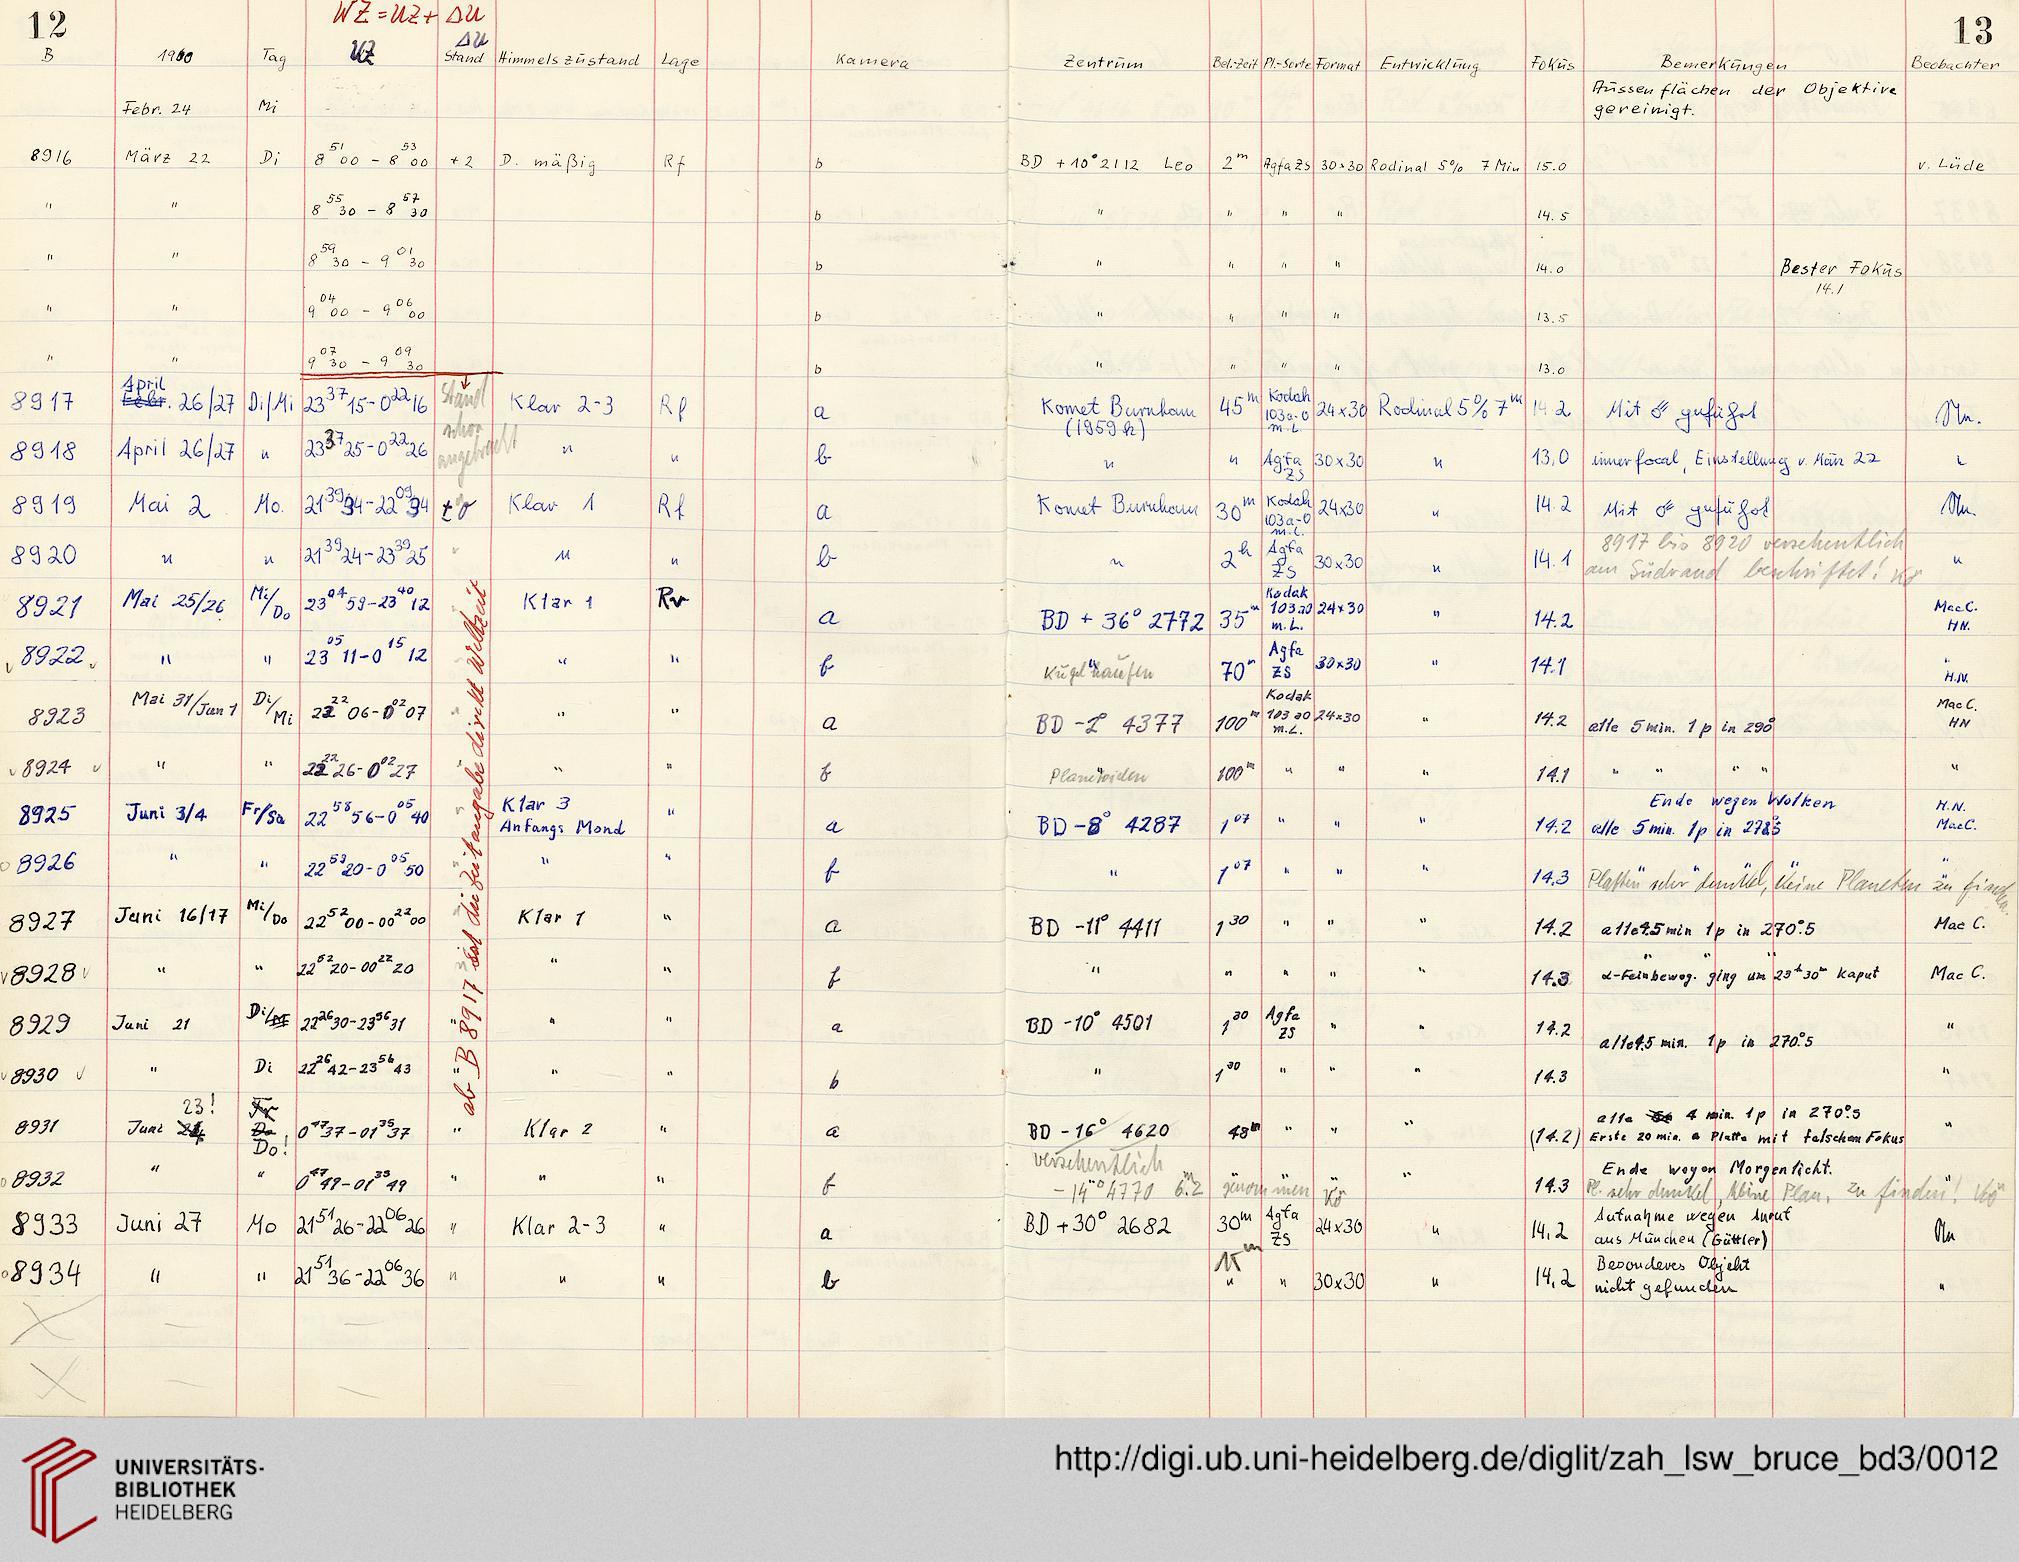 12
13
WZ = UZ + ΔU
B 1960 Tag UZ ΔU Stand Himmelszustand Lage Kamera Zentrum Bel.-Zeit Pl.-Sorte Format Entwicklung Fokus Bemerkungen Beobachter
Febr. 24 Mi Aussenflächen der Objektive
gereinigt.
8916 März 22 Di 8 51 00 - 8 53 00 +2 D. mäßig Rf b BD +10° 2112 Leo 2m Agfa ZS 30x30 Rodinal 5% 7 Min 15.0 v. Lüde
" " 8 55 30 - 8 57 30 b " " " " 14.5
" " 8 59 30 - 9 01 30 b " " " " 14.0 Bester Fokus
14.1
" " 9 04 00 - 9 06 00 b " " " " 13.5
" " 9 07 30 - 9 09 30 b " " " " 13.0
8917 April Febr. 26/27 Di/Mi 23 37 15 - 0 22 16 Stand Klar 2-3 Rf a Komet Burnham (1959k) 45m Kodak 103a-O m.L. 24x30 Rodinal 5% 7m 14.2 Mit ☄ geführt
schon angebracht
8918 April 26/27 " 23 37 25 - 0 22 26 " " b " " Agfa ZS 30x30 " 13,0 innerfocal, Einstellung v. März 22
8919 Mai 2 Mo. 21 39 34 - 22 09 34 ±0 Klar 1 Rf a Komet Burnham 30m Kodak 103a-O m.L. 24x30 " 14.2 Mit ☄ geführt
8920 " " 21 39 24 - 23 39 25 " " " b " 2h Agfa ZS 30x30 " 14.1 8917 bis 8920 versehentlich "
am Südrand beschriftet! Kö
8921 Mai 25/26 Mi/Do 23 04 59 - 23 40 12 Klar 1 Rv a BD + 36° 2772 35m Kodak 103a0 m.L. 24x30 " 14.2 MacC. HN.
8922 " " 23 05 11 - 0 15 12 " " " f " Kugelhaufen 70m Agfa ZS 30x30 " 14.1 " H.N.
8923 Mai 31/Jun 1 Di/Mi 22 22 06 - 0 02 07 " " " a BD -2° 4377 100m Kodak 103a0 m.L. 24x30 " 14.2 alle 5 min. 1p in 290° MacC. HN
8924 " " 22 22 26 - 0 02 27 " " f " Planetoiden 100m " " " 14.1 " " " " "
8925 Juni 3/4 Fr/Sa 22 58 56 - 0 05 40 " Klar 3 " a BD -8° 4287 1 07 " " " 14.2 Ende wegen Wolken H.N.
Anfangs Mond alle 5 min. 1p in 278.5 MacC.
8926 " " 22 59 20 - 0 05 50 " " " f " 1 07 " " " 14.3 Platten sehr dunkel, keine Planeten zu finden "
8927 Juni 16/17 Mi/Do 22 52 00 - 00 22 00 " Klar 1 " a BD -11° 4411 1 30 " " " 14.2 alle 4.5 min 1p in 270°.5 Mac C.
8928 " " 22 52 20 - 00 22 20 " " " f " " " " " 14.3 α-Feinbeweg. ging um 23h 30m kaput Mac C.
8929 Juni 21 Di 22 26 30 - 23 56 31 " " " a BD -10° 4501 1 30 Agfa ZS " " 14.2 "
alle 4.5 min. 1p in 270°.5
8930 " Di 22 26 42 - 23 56 43 " " " b " 1 30 " " " 14.3 "
8931 Juni 23! Fr Do Do! 0 47 37 - 01 35 37 " Klar 2 " a BD -16° 4620 48m " " " (14.2) alle 4 min. 1p in 270°.5 "
Erste 20 min. a Platte mit falschem Fokus
8932 " " 0 47 49 - 01 35 49 " " " f versehentlich -14° 4770 6m.2 genommen Kö " 14.3 Ende wegen Morgenlicht. "
Pl. sehr dunkel, keine Plan. zu finden! Kö
8933 Juni 27 Mo 21 51 26 - 22 06 26 " Klar 2-3 " a BD +30° 2682 30m 15m Agfa ZS 24x30 " 14,2 Aufnahme wegen Anruf
aus München (Güttler)
8934 " " 21 51 36 - 22 06 36 " " " b " " 30x30 " 14,2 Besonderes Objekt "
nicht gefunden
ab B 8917 ist die Zeitangabe direkt Weltzeit
UNIVERSITÄTS-
BIBLIOTHEK
HEIDELBERG
http://digi.ub.uni-heidelberg.de/diglit/zah_lsw_bruce_bd3/0012